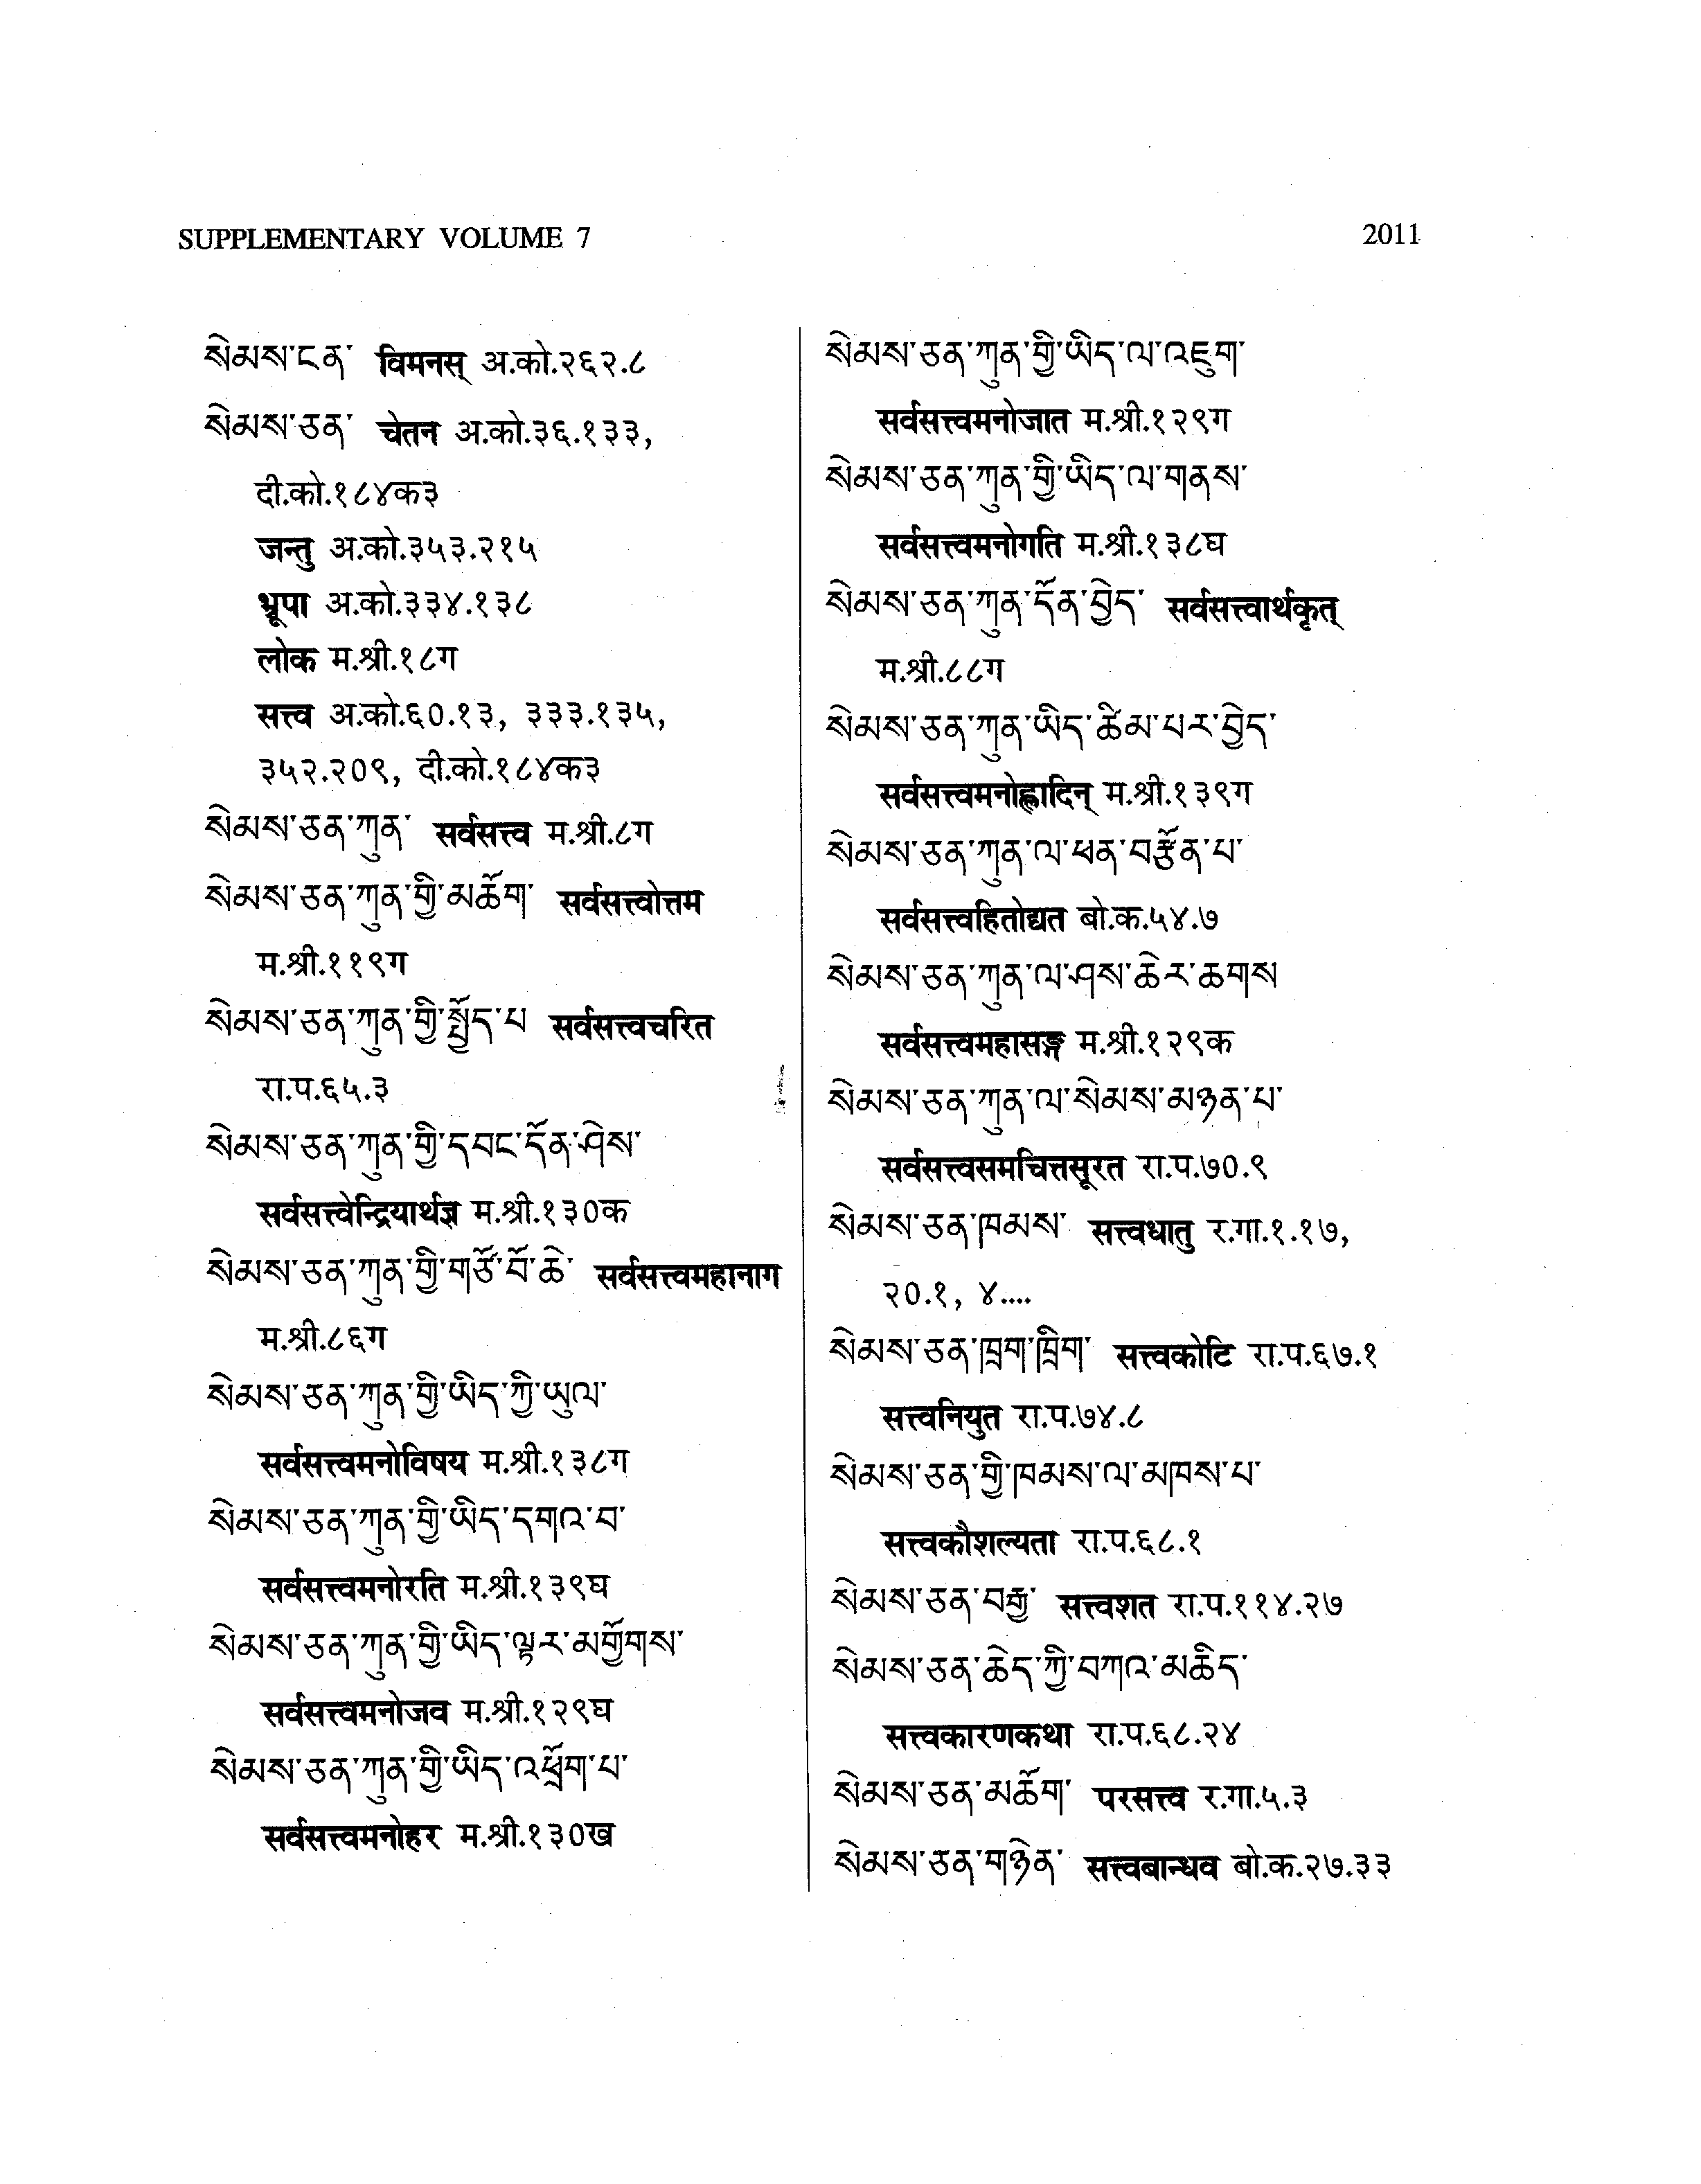 SUPPLEMENTARY VOLUME 7
2011
སེམས་ངན་ विमनस् अ.को.२६२.८
སེམས་ཅན་ चेतन अ.को.३६.१३३,
दी.को.१८४क३
जन्तु अ.को.३५३.२१५
भ्रूपा अ.को.३३४.१३८
लोक म.श्री.१८ग
सत्त्व अ.को.६०.१३, ३३३.१३५,
३५२.२०९, दी.को.१८४क३
སེམས་ཅན་ཀུན་ सर्वसत्त्व म.श्री.८ग
སེམས་ཅན་ཀུན་གྱི་མཆོག་ सर्वसत्त्वोत्तम
म.श्री.११९ग
སེམས་ཅན་ཀུན་གྱི་སྤྱོད་པ सर्वसत्त्वचरित
रा.प.६५.३
སེམས་ཅན་ཀུན་གྱི་དབང་དོན་ཤེས་
सर्वसत्त्वेन्द्रियार्थज्ञ म.श्री.१३०क
སེམས་ཅན་ཀུན་གྱི་གཙོ་བོ་ཆེ་ सर्वसत्त्वमहानाग
म.श्री.८६ग
སེམས་ཅན་ཀུན་གྱི་ཡིད་ཀྱི་ཡུལ་
सर्वसत्त्वमनोविषय म.श्री.१३८ग
སེམས་ཅན་ཀུན་གྱི་ཡིད་དགའ་བ་
सर्वसत्त्वमनोरति म.श्री.१३९घ
སེམས་ཅན་ཀུན་གྱི་ཡིད་ལྟར་མགྱོགས་
सर्वसत्त्वमनोजव म.श्री.१२९घ
སེམས་ཅན་ཀུན་གྱི་ཡིད་འཕྲོག་པ་
सर्वसत्त्वमनोहर म.श्री.१३०ख
སེམས་ཅན་ཀུན་གྱི་ཡིད་ལ་འཇུག་
सर्वसत्त्वमनोजात म.श्री.१२९ग
སེམས་ཅན་ཀུན་གྱི་ཡིད་ལ་གནས་
सर्वसत्त्वमनोगति म.श्री.१३८घ
སེམས་ཅན་ཀུན་དོན་བྱེད་ सर्वसत्त्वार्थकृत्
म.श्री.८८ग
སེམས་ཅན་ཀུན་ཡིད་ཚིམ་པར་བྱེད་
सर्वसत्त्वमनोह्लादिन् म.श्री.१३९ग
སེམས་ཅན་ཀུན་ལ་ཕན་བརྩོན་པ་
सर्वसत्त्वहितोद्यत बो.क.५४.७
སེམས་ཅན་ཀུན་ལ་ཤས་ཆེར་ཆགས
सर्वसत्त्वमहासङ्ग म.श्री.१२९क
སེམས་ཅན་ཀུན་ལ་སེམས་མཉན་པ་
सर्वसत्त्वसमचित्तसूरत रा.प.७०.९
སེམས་ཅན་ཁམས་ सत्त्वधातु र.गा.१.१७,
२०.१, ४....
སེམས་ཅན་ཁྲག་ཁྲིག་ सत्त्वकोटि रा.प.६७.१
सत्त्वनियुत रा.प.७४.८
སེམས་ཅན་གྱི་ཁམས་ལ་མཁས་པ་
सत्त्वकौशल्यता रा.प.६८.१
སེམས་ཅན་བརྒྱ་ सत्त्वशत रा.प.११४.२७
སེམས་ཅན་ཆེད་ཀྱི་བཀའ་མཆིད་
सत्त्वकारणकथा रा.प.६८.२४
སེམས་ཅན་མཆོག་ परसत्त्व र.गा.५.३
སེམས་ཅན་གཉེན་ सत्त्वबान्धव बो.क.२७.३३